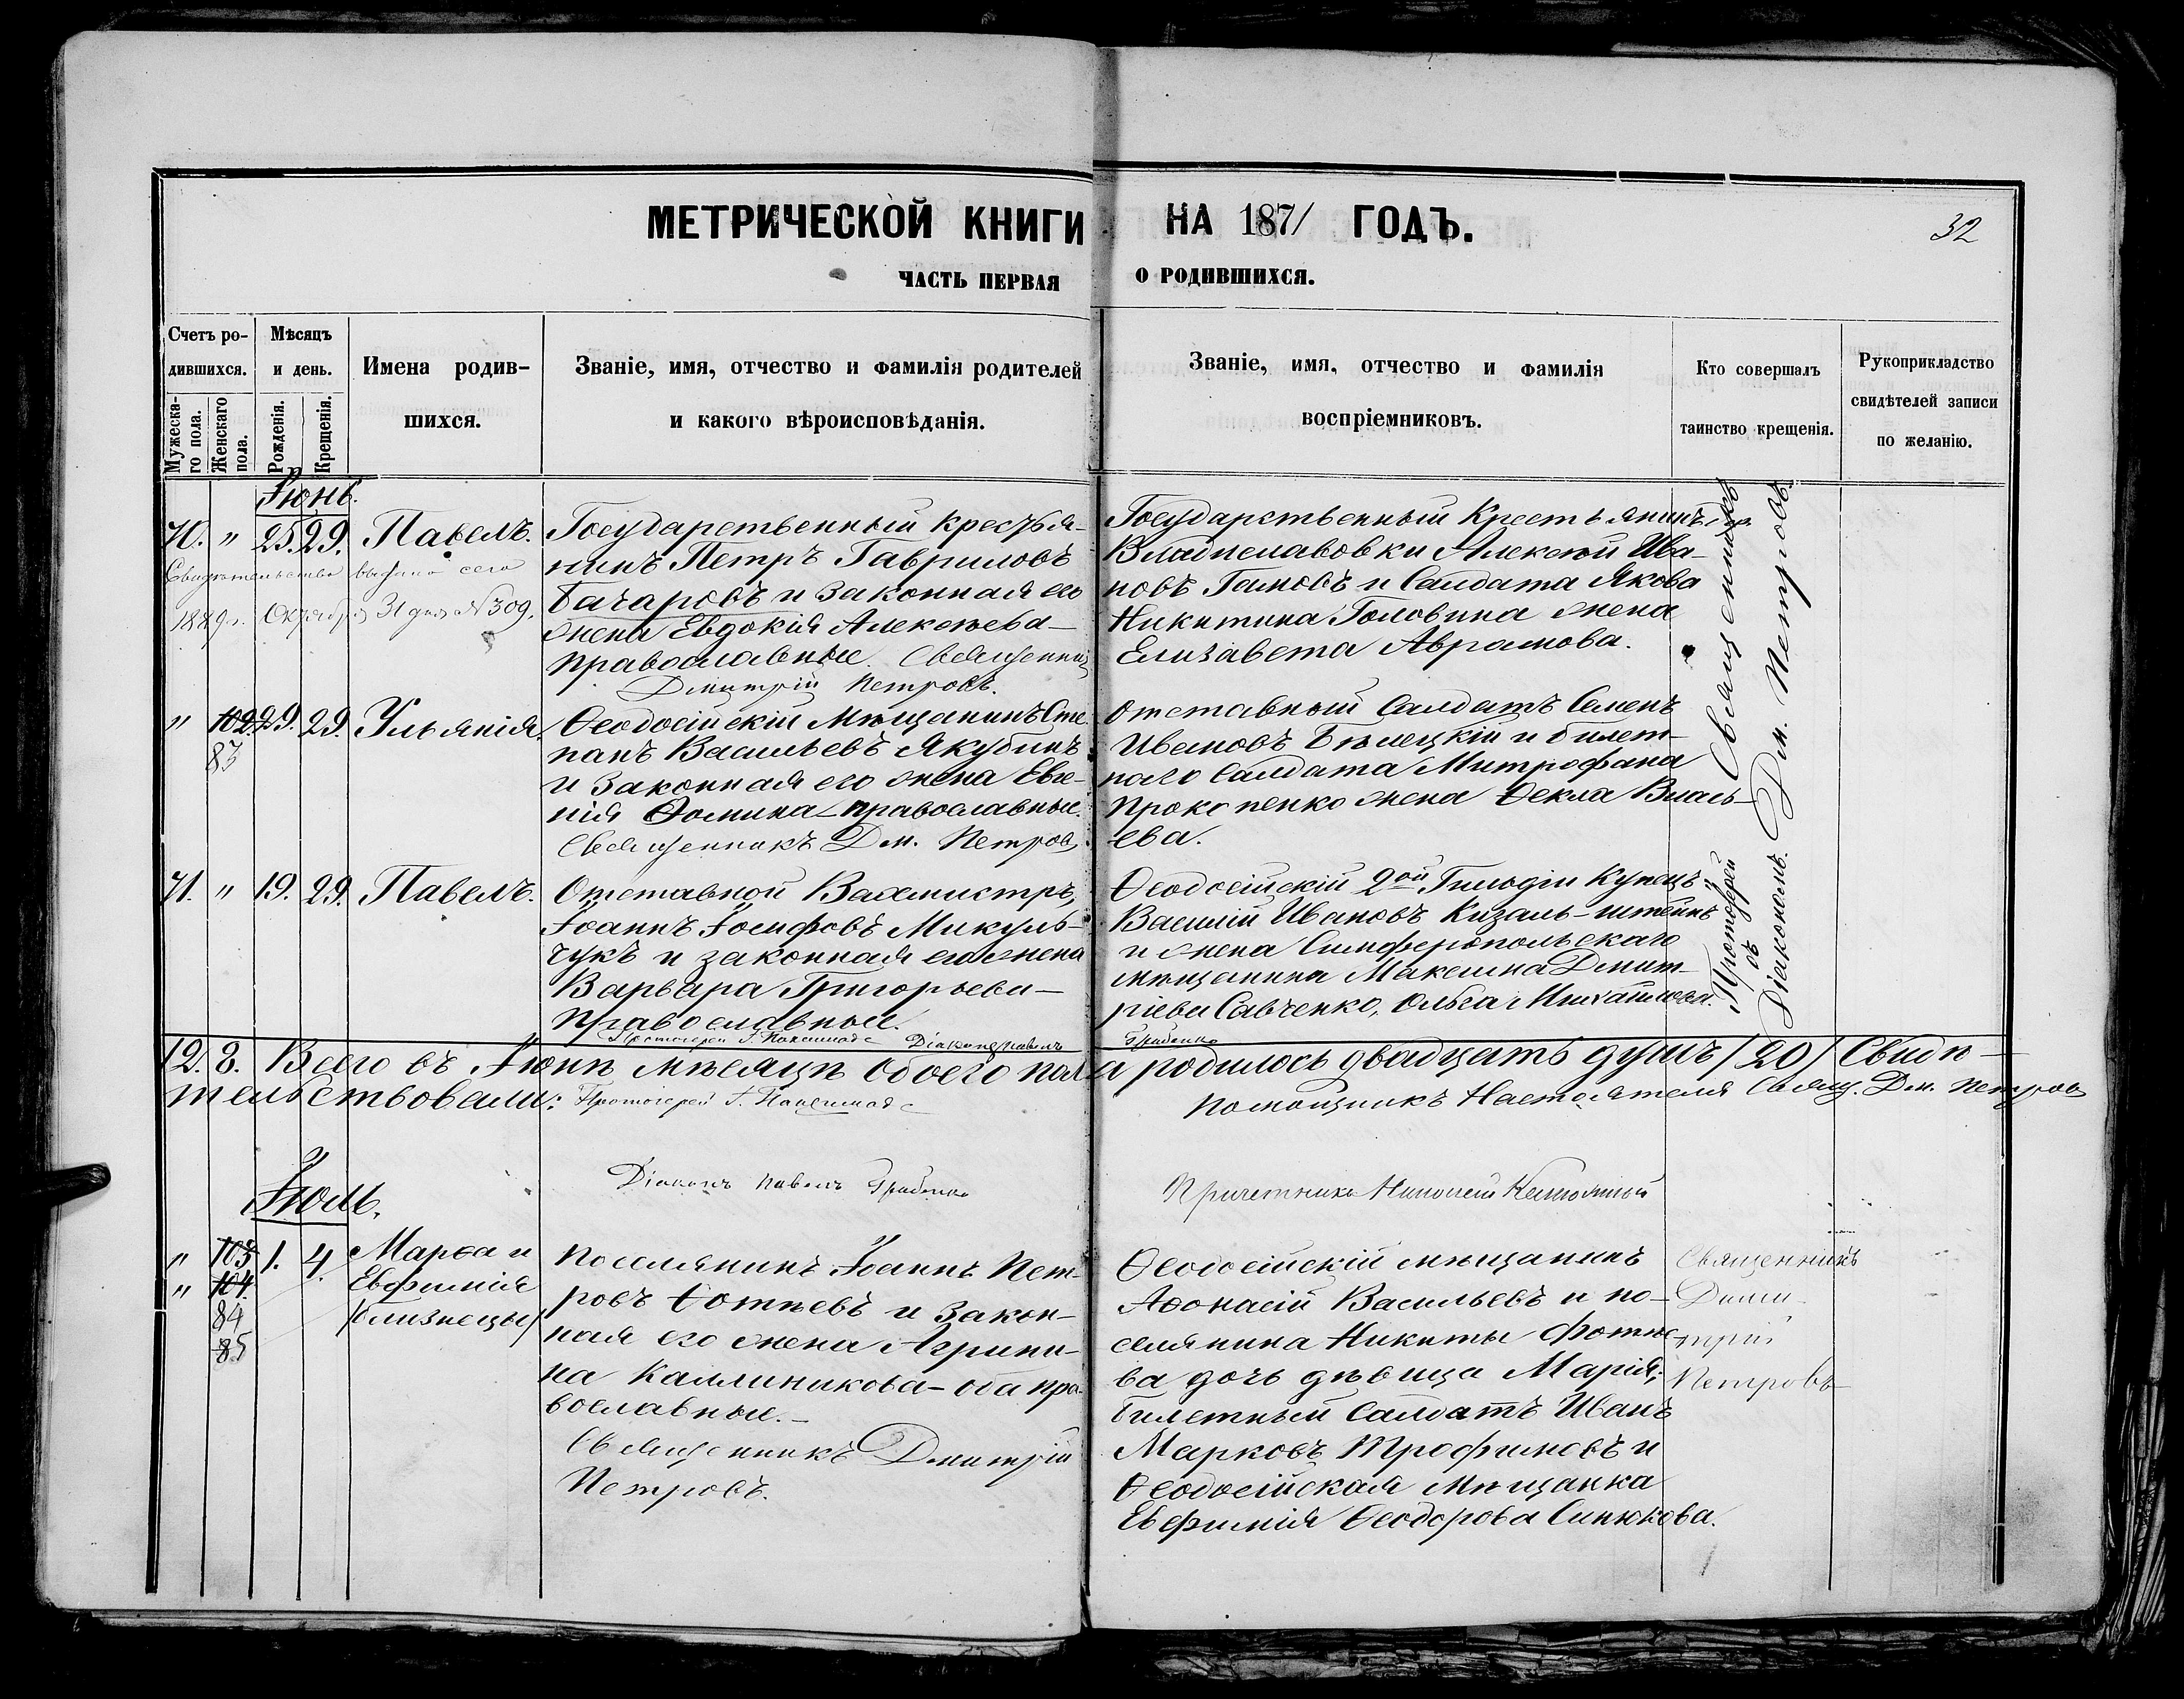 МЕТРИЧЕСКОЙ КНИГИ НА 1871 ГОДЪ.
32
ЧАСТЬ ПЕРВАЯ О РОДИВШИХСЯ.
Счетъ ро-
дившихся.
Мужеска-
го пола.
Женскаго
пола.
Мѣсяцъ
и день.
Рожденія.
Крещенія.
Имена родив-
шихся.
Званіе, имя, отчество и фамилія родителей
и какого вѣроисповѣданія.
Званіе, имя, отчество и фамилія
воспріемниковъ.
Кто совершалъ
таинство крещенія.
Рукоприкладство
свидѣтелей записи
по желанію.
Іюнь.
70. " 25. 29. Павелъ.
Свидѣтельство выдано сего
1889 г. Октября 31 дня №309.
Государственный кресть­я-
нинъ Петръ Гавриловъ
Бачаровъ и законная его
жена Евдокія Алексѣева
православные. Священникъ
Дмитрій Петровъ.
Государственный Крестьянинъ
Владиславовки Алексѣй Ива-
новъ Гамовъ и Салдата Якова
Никитина Головина жена
Елизавета Аврамова.
Священникъ
Дм. Петровъ.
" 102 29. 29. Ульянія.
83
Ѳеодосійскій Мѣщанинъ Сте-
панъ Васильевъ Якубинъ
и законная его жена Евге-
нія Ѳомина православные.
Священникъ Дм. Петровъ
Отставный Салдатъ Семенъ
Ивановъ Бѣлецкій и билет-
наго Салдата Митрофана
Прокопенко жена Ѳекла Влась-
ева.
71. " 19. 29. Павелъ.
Отставной Вахмистръ,
Іоаннъ Іосифовъ Микуль-
чукъ и законная его жена
Варвара Григорьева
Православные.
Протоіерей
Діаконъ Павелъ Грибенко
Ѳеодосійскій 2ой Гильдіи Купецъ
Василій Ивановъ Кизаль-штейнъ
и жена Симферопольскаго
мѣщанина Максима Дмит-
ріева Савченко, Ольга Михайлова.
Протоіерей
съ
Діакономъ.
12. 8. Всего въ Іюнѣ мѣсяцѣ обоего пола родилось двадцать душъ /20/ Свидѣ-
тельствовали: Протоіерей
Помощникъ Настоятеля Свящ. Дм. Петровъ
Діаконъ Павелъ Грибенко
Причетникъ Николай
Іюль.
" 103 1. 4. Марѳа и
" 104 Евфимія
84 /близнецы/
85
Поселянинъ Іоаннъ Пет-
ровъ Ѳотнѣевъ и закон-
ная его жена Агрипи-
на Каллиникова - оба пра-
вославные.
Священникъ Дмитрій
Петровъ.
Ѳеодосійскій мѣщанинъ
Аѳонасій Васильевъ и по-
селянина Никиты Фотнѣе-
ва дочь дѣвица Марія;
билетный Салдатъ Иванъ
Марковъ Трофимовъ и
Ѳеодосійская Мѣщанка
Евфимія Ѳеодорова Синюкова.
Священникъ
Дими-
трій
Петровъ